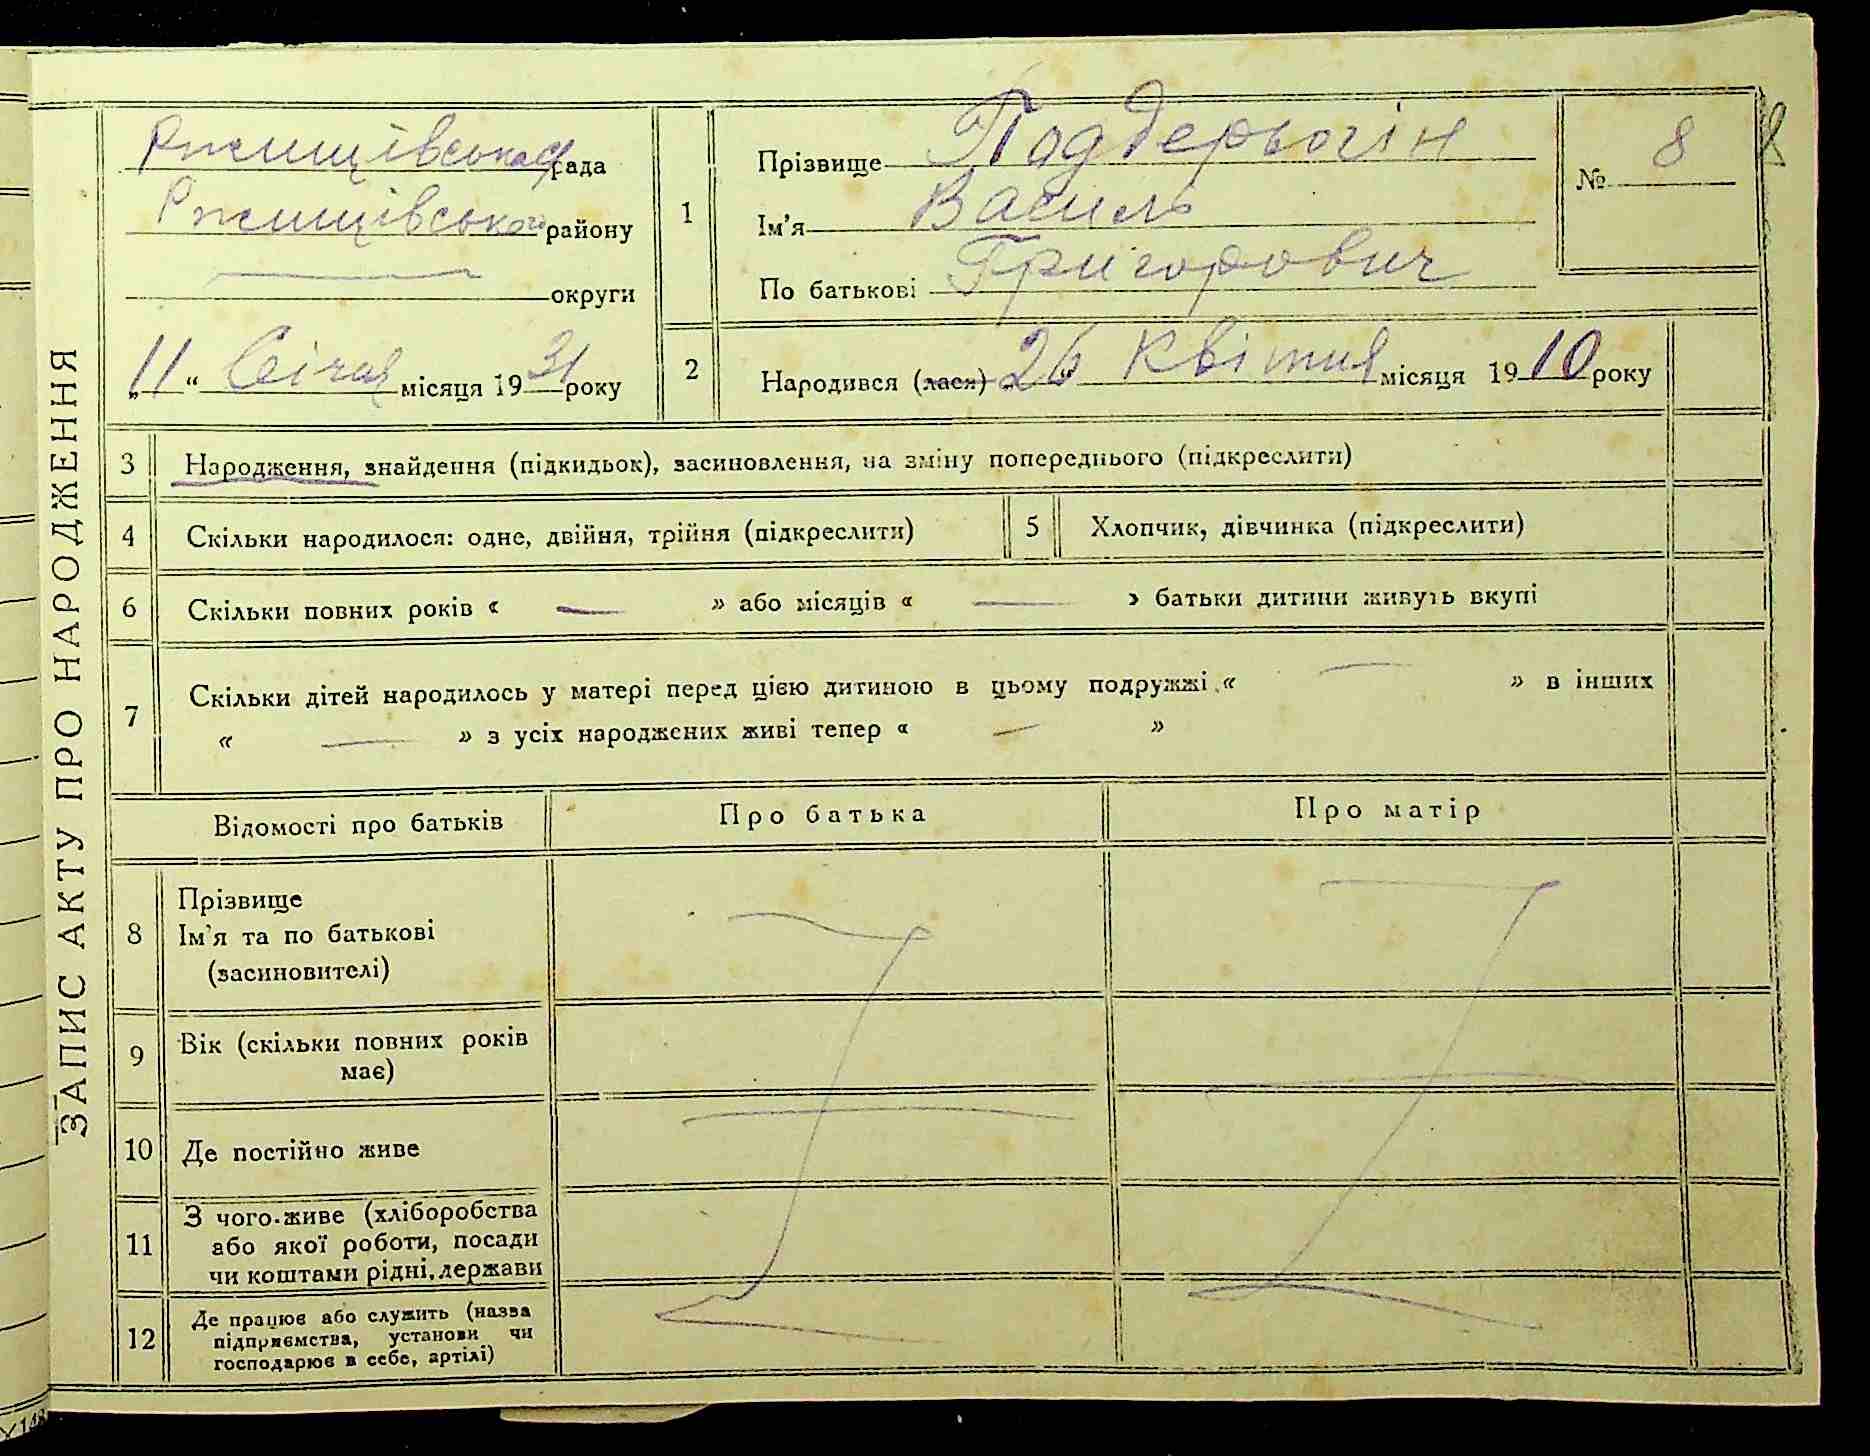 ЗАПИС АКТУ ПРО НАРОДЖЕННЯ
Ржищівська рада
Ржищівського району
округи
„11“ Січня місяця 1931 року
1
Прізвище Поддерьогін
Ім'я Василь
По батькові Григорович
№ 8
8
2 Народився (лася) „26“ Квітня місяця 1910 року
3 Народження, знайдення (підкидьок), засиновлення, на зміну попереднього (підкреслити)
4 Скільки народилося: одне, двійня, трійня (підкреслити)
5 Хлопчик, дівчинка (підкреслити)
6 Скільки повних років « — » або місяців « — » батьки дитини живуть вкупі
7 Скільки дітей народилось у матері перед цією дитиною в цьому подружжі « — » в інших
« — » з усіх народжених живі тепер « — »
Відомості про батьків
Про батька
Про матір
8 Прізвище
Ім'я та по батькові
(засиновителі)
9 Вік (скільки повних років
має)
10 Де постійно живе
11 З чого живе (хліборобства
або якої роботи, посади
чи коштами рідні, держави
12 Де працює або служить (назва
підприємства, установи чи
господарює в себе, артілі)